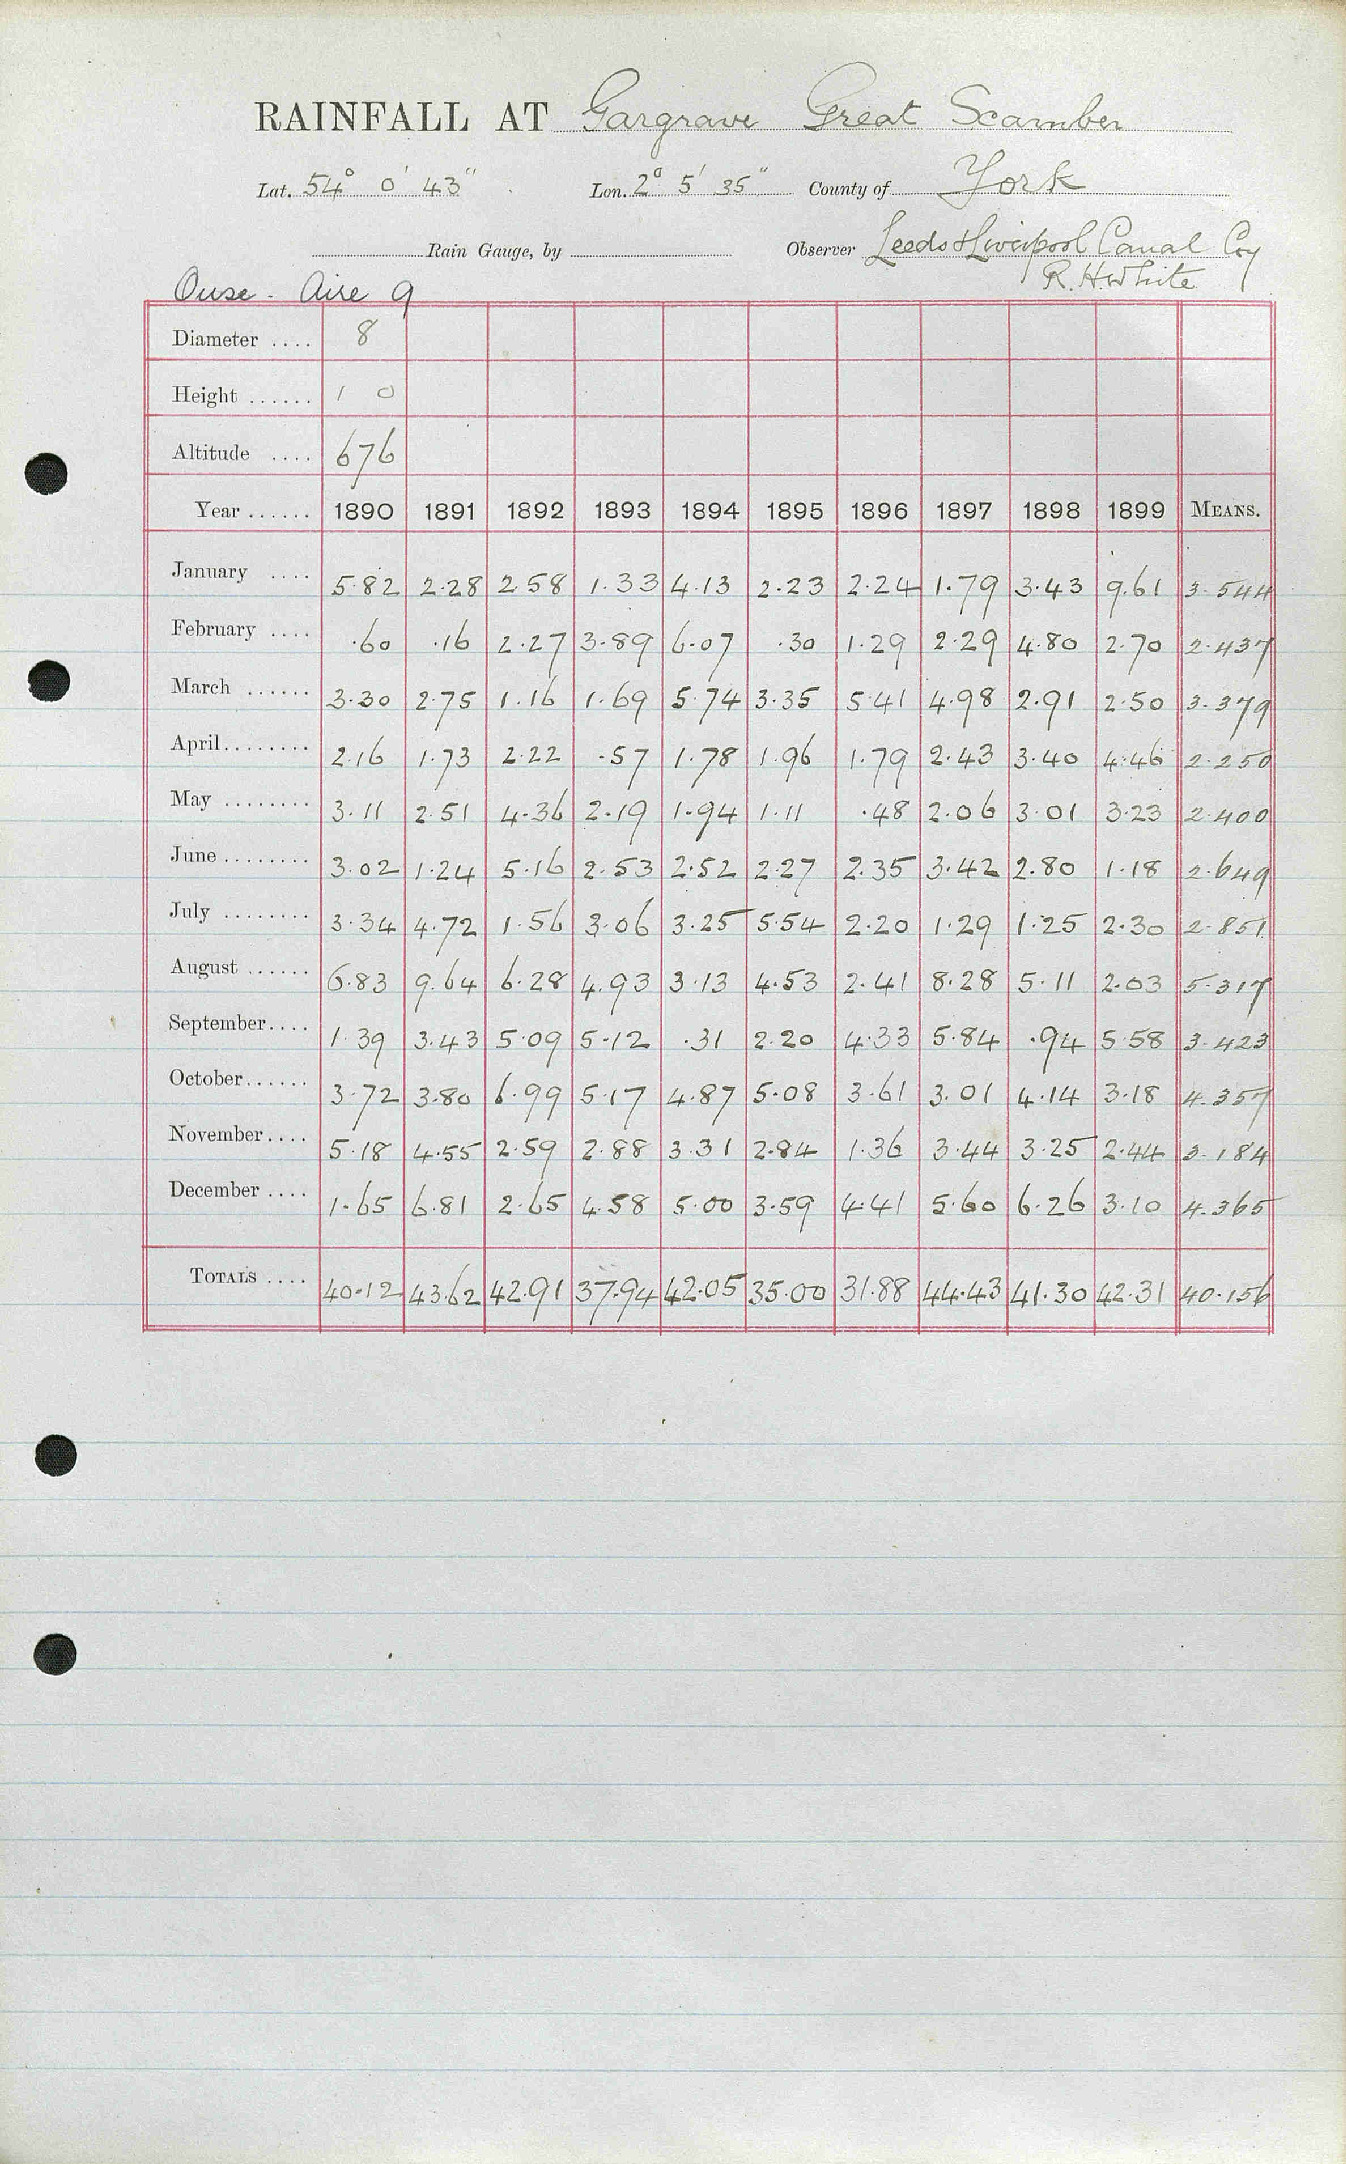 RAINFALL AT Gargrave Great Scamber
Lat. 54° 0' 43" Lon. 2° 5' 35" County of York
Rain Gauge, by Observer Leeds & Liverpool Canal Coy
R. H. White
Ouse - Aire 9
Diameter .... 8
Height ...... 1 0
Altitude .... 676
Year ...... 1890 1891 1892 1893 1894 1895 1896 1897 1898 1899 MEANS.
January .... 5.82 2.28 2.58 1.33 4.13 2.23 2.24 1.79 3.43 9.61 3.544
February .... .60 .16 2.27 3.89 6.07 .30 1.29 2.29 4.80 2.70 2.437
March ...... 3.30 2.75 1.16 1.69 5.74 3.35 5.41 4.98 2.91 2.50 3.379
April........ 2.16 1.73 2.22 .57 1.78 1.96 1.79 2.43 3.40 4.46 2.250
May ........ 3.11 2.51 4.36 2.19 1.94 1.11 .48 2.06 3.01 3.23 2.400
June ........ 3.02 1.24 5.16 2.53 2.52 2.27 2.35 3.42 2.80 1.18 2.649
July ........ 3.34 4.72 1.56 3.06 3.25 5.54 2.20 1.29 1.25 2.30 2.851
August ...... 6.83 9.64 6.28 4.93 3.13 4.53 2.41 8.28 5.11 2.03 5.317
September.... 1.39 3.43 5.09 5.12 .31 2.20 4.33 5.84 .94 5.58 3.423
October...... 3.72 3.80 6.99 5.17 4.87 5.08 3.61 3.01 4.14 3.18 4.357
November.... 5.18 4.55 2.59 2.88 3.31 2.84 1.36 3.44 3.25 2.44 3.184
December .... 1.65 6.81 2.65 4.58 5.00 3.59 4.41 5.60 6.26 3.10 4.365
TOTALS .... 40.12 43.62 42.91 37.94 42.05 35.00 31.88 44.43 41.30 42.31 40.156